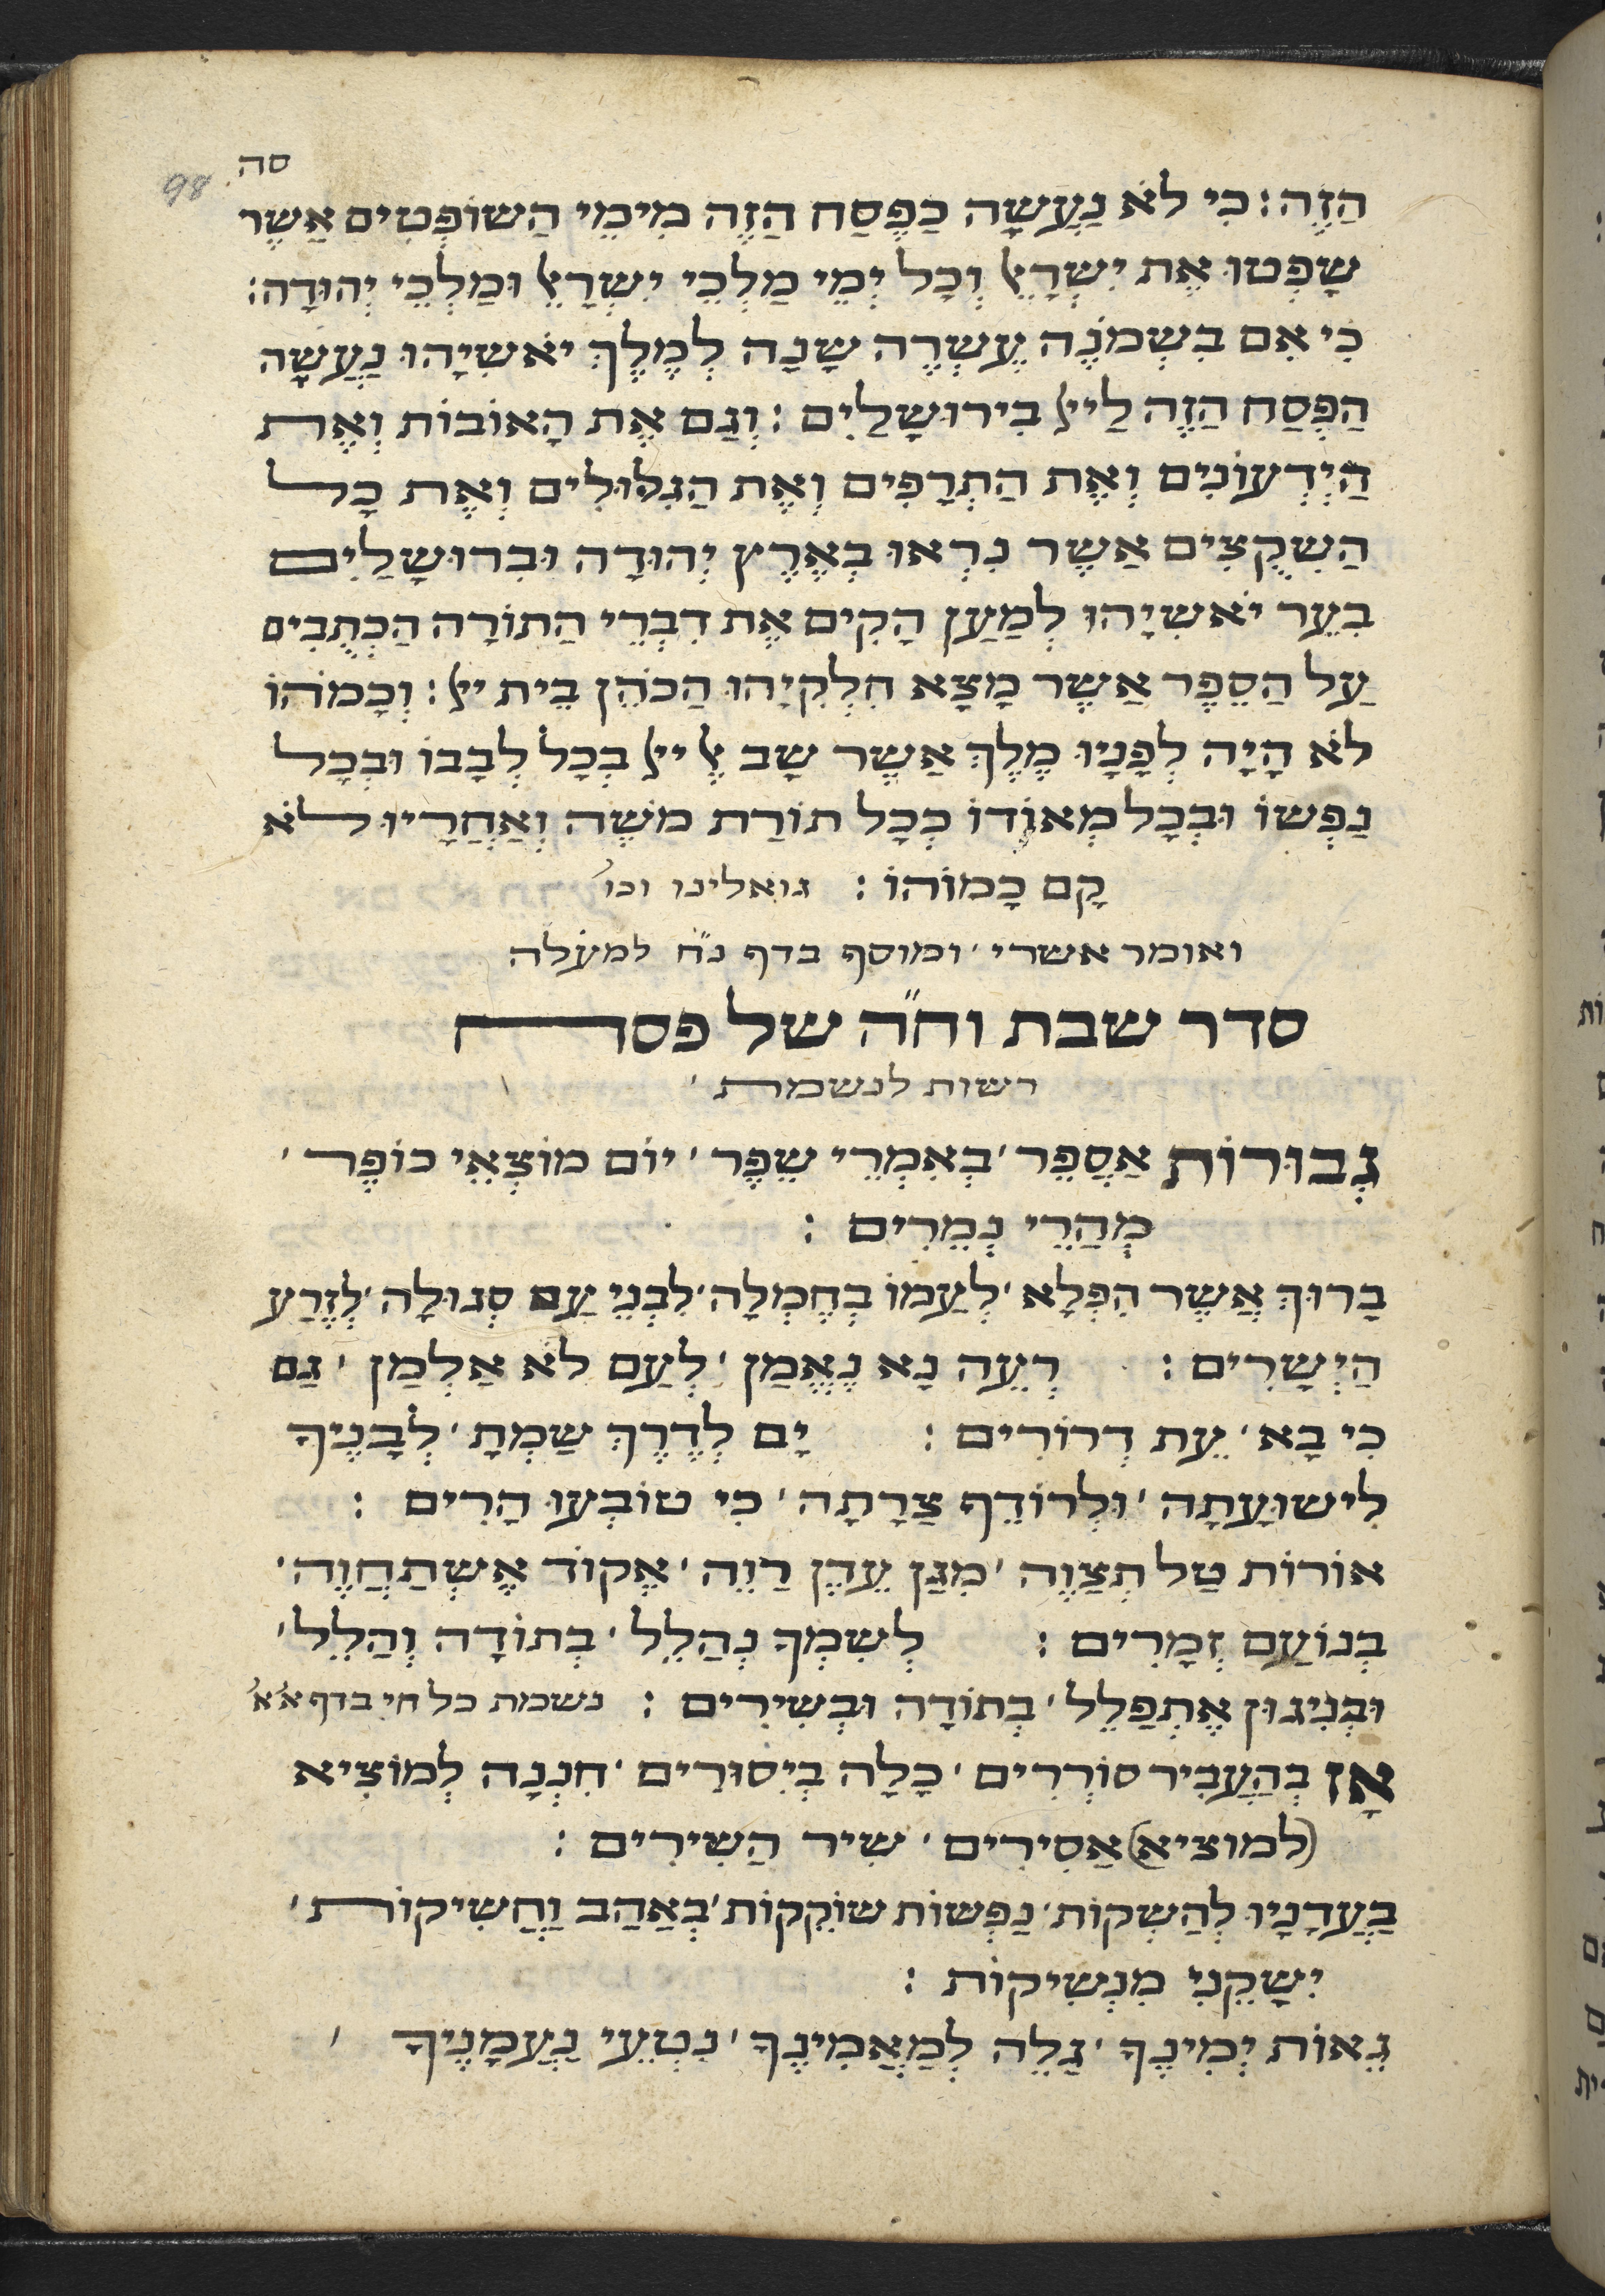 סה
98
הַזֶּה: כִּי לֹא נַעֲשָׂה כַּפֶּסַח הַזֶּה מִימֵי הַשּׁוֹפְטִים אֲשֶׁר
שָׁפְטוּ אֶת יִשְׂרָאֵל וְכָל יְמֵי מַלְכֵי יִשְׂרָאֵל וּמַלְכֵי יְהוּדָה:
כִּי אִם בִּשְׁמֹנֶה עֶשְׂרֵה שָׁנָה לְמֶלֶךְ יֹאשִׁיָהוּ נַעֲשָׂה
הַפֶּסַח הַזֶּה לַיְיָ בִּירוּשָׁלַיִם: וְגַם אֶת הָאוֹבוֹת וְאֶת
הַיִּדְעוֹנִים וְאֶת הַתְּרָפִים וְאֶת הַגִּלּוּלִים וְאֶת כָּל
הַשִּׁקֻצִים אֲשֶׁר נִרְאוּ בְּאֶרֶץ יְהוּדָה וּבִרוּשָׁלַיִם
בִּעֵר יֹאשִׁיָהוּ לְמַעַן הָקִים אֶת דִּבְרֵי הַתּוֹרָה הַכְּתֻבִים
עַל הַסֵּפֶר אֲשֶׁר מָצָא חִלְקִיָהוּ הַכֹּהֵן בֵּית יְיָ: וְכָמֹהוֹ
לֹא הָיָה לְפָנָיו מֶלֶךְ אֲשֶׁר שָׁב אֶל יְיָ בְּכָל לְבָבוֹ וּבְכָל
נַפְשׁוֹ וּבְכָל מְאוֹדוֹ כְּכָל תּוֹרַת מֹשֶׁה וְאַחֲרָיו לֹא
קָם כָּמוֹהוֹ: גואלינו וכו'
ואומר אשרי' ומוסף בדף נ"ח למעלה
סדר שבת וח"ה של פסח
רשות לנשמת'
גְּבוּרוֹת אֲסַפֵּר' בְּאִמְרֵי שֶׁפֶר' יוֹם מוֹצְאִי כּוֹפֶר'
מְהַרֵי נְמֵרִים:
בָּרוּךְ אֲשֶׁר הִפְלָא' לְעַמּוֹ בְּחֶמְלָה' לִבְנֵי עַם סְגוּלָה' לְזֶרַע
הַיְשָׁרִים: רְעֵה נָא נֶאֱמַן' לְעַם לֹא אַלְמַן' גַּם
כִּי בָא' עֵת דְּרוֹרִים: יָם לְדֶרֶךְ שַׂמְתָּ' לְבָנֶיךָ
לִישׁוּעָתָה' וּלְרוֹדֵף צָרָתָה' כִּי טוֹבְעוּ הָרִים:
אוֹרוֹת טַל תְּצַוֶּה' מִגַּן עֵדֶן רַוֵּה' אֶקּוֹד אֶשְׁתַּחֲוֶה'
בְּנוֹעַם זְמָרִים: לְשִׁמְךָ נְהַלֵּל' בְּתוֹדָה וְהַלֵּל'
וּבְנִיגוּן אֶתְפַּלֵּל' בְּתוֹדָה וּבְשִׁירִים: נשמת כל חי בדף א'א'
אָז בְּהַעֲבִיר סוֹרְרִים' כָּלָה בְּיִסּוּרִים' חִנְנָה לְמוֹצִיא
(למוציא) אֲסִירִים' שִׁיר הַשִּׁירִים:
בַּעֲדָנָיו לְהַשְׁקוֹת' נַפְשׁוֹת שׁוֹקְקוֹת' בְּאַהַב וַחֲשִׁיקוֹת'
יִשָּׁקֵנִי מִנְּשִׁיקוֹת:
גֵּאוּת יְמִינֶךָ' גַּלֵּה לְמַאֲמִינֶךָ' נִטְעֵי נַעֲמָנֶיךָ'